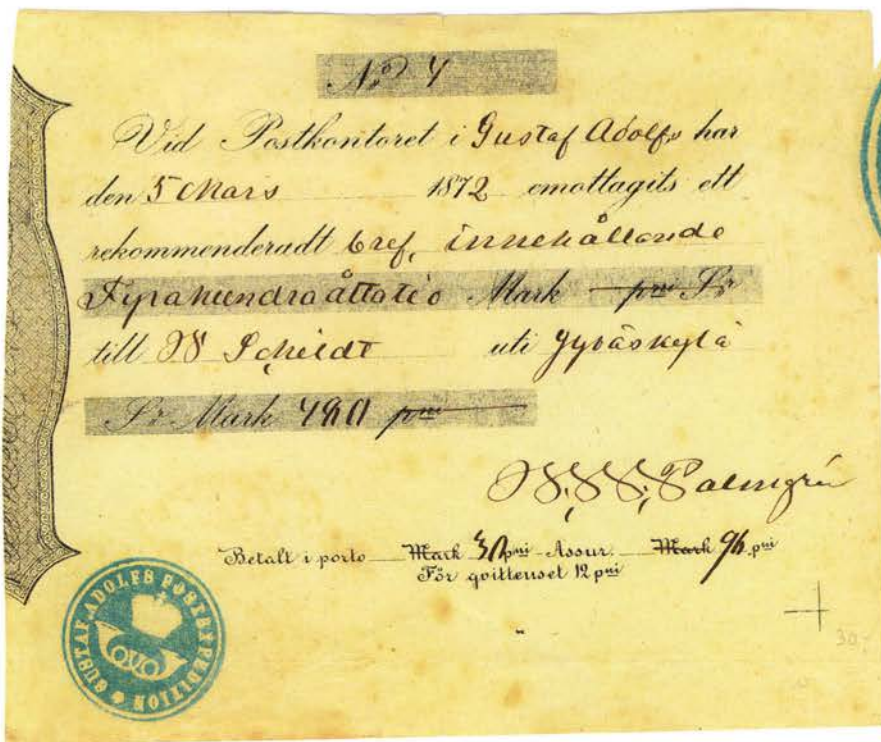 No 4
Vid Postkontoret i Gustaf Adolfs har
den 5 Mars 1872 emottagits ett
rekommenderadt bref, innehållande
Fyrahundraåttatio Mark pni Sr
till W Schildt uti Jyväskylä
Sr Mark 480 pni
Palmgrén
Betalt i porto Mark 30 pni Assur. Mark 96 pni
För qvittenset 12 pni
GUSTAF ADOLFS POSTEXPEDITION
30:-